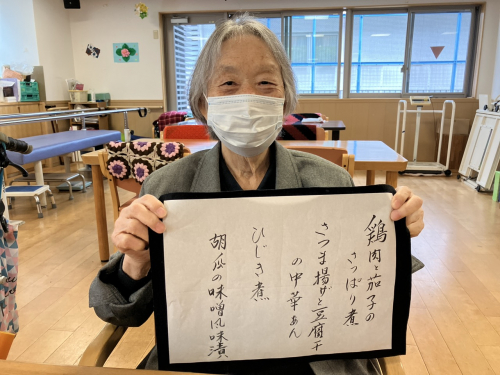 鶏肉と茄子の
さっぱり煮
さつま揚げと豆腐干
の中華あん
ひじき煮
胡瓜の味噌風味漬